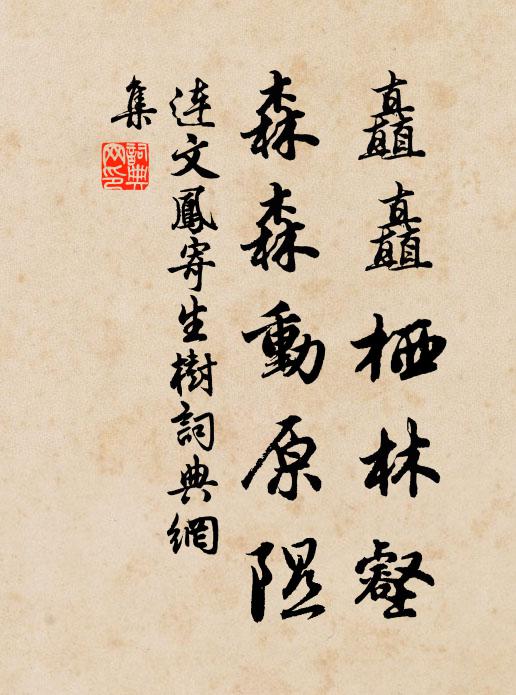 矗矗栖林壑
森森動原隰
連文鳳寄生樹詞典網
集
詞典網印